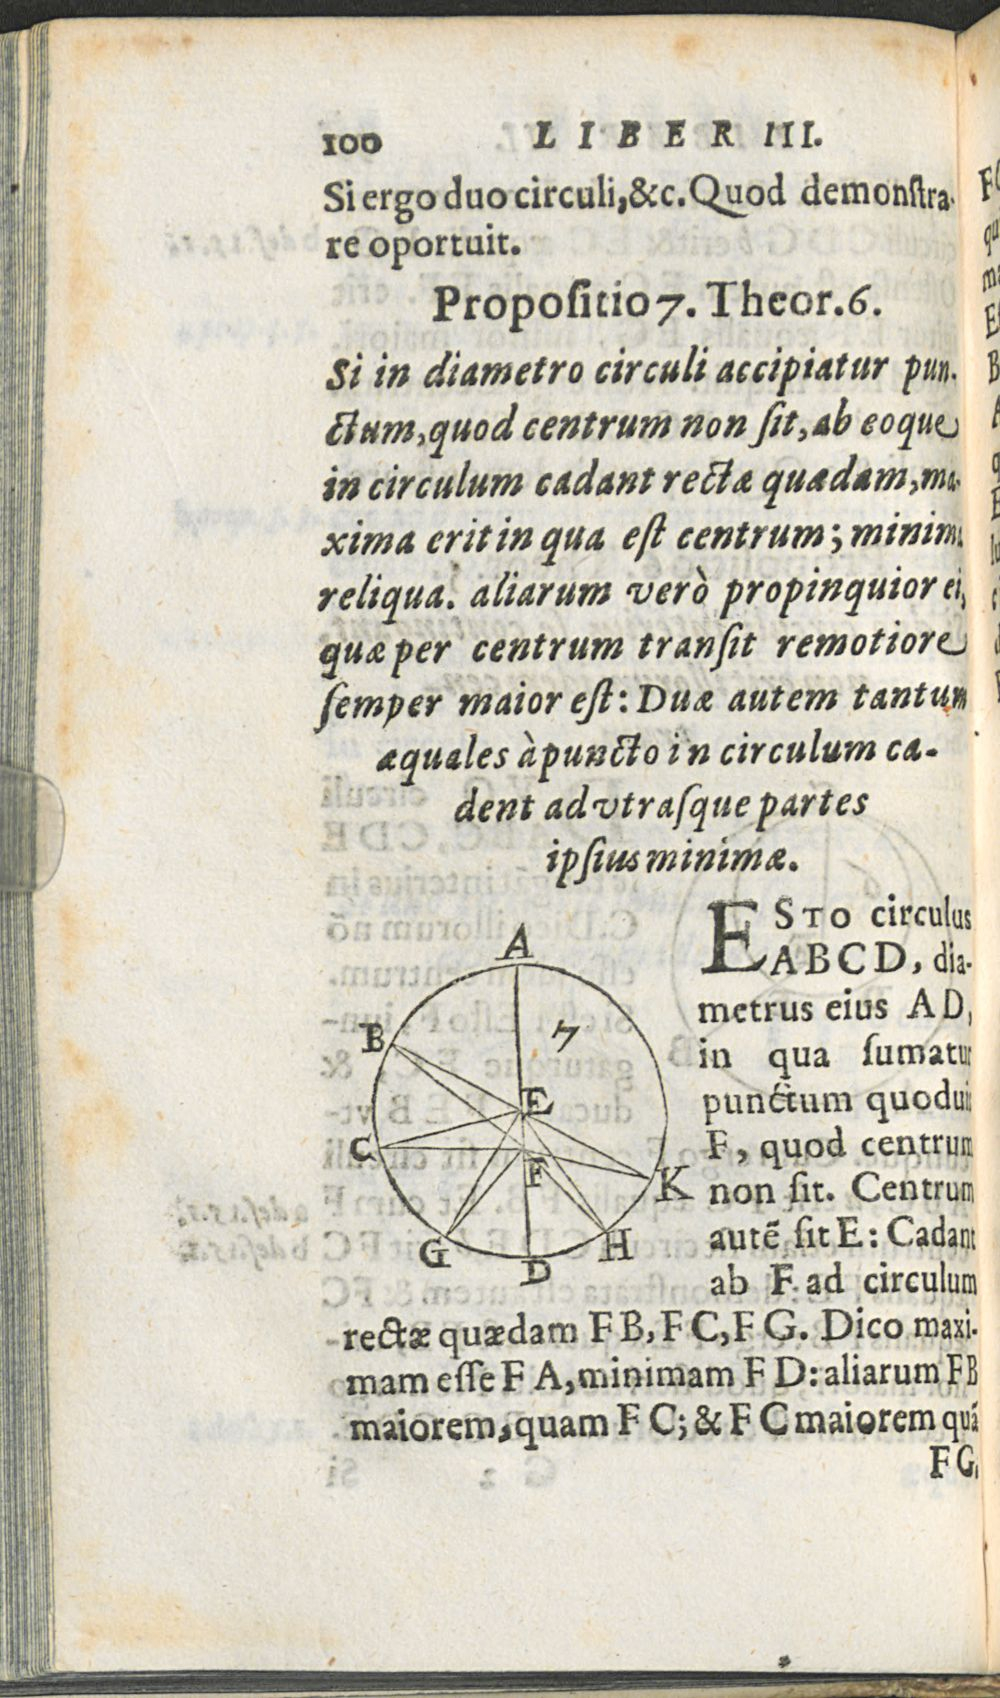 100 LIBER III.
Si ergo duo circuli,&c. Quod demonſtra-
re oportuit.
Propoſitio 7. Theor. 6.
Si in diametro circuli accipiatur pun-
ctum, quod centrum non ſit, ab eoque
in circulum cadant rectæ quædam, ma-
xima erit in qua eſt centrum; minima
reliqua. aliarum verò propinquior ei,
quæ per centrum tranſit remotiore
ſemper maior eſt: Duæ autem tantum
æquales à puncto in circulum ca-
dent ad vtraſque partes
ipſius minimæ.
ESTO circulus
ABCD, dia-
metrus eius AD,
in qua ſumatur
punctum quoduis
F, quod centrum
non ſit. Centrum
autẽ ſit E: Cadant
ab F ad circulum
rectæ quædam FB, FC, FG. Dico maxi-
mam eſſe FA, minimam FD: aliarum FB
maiorem, quam FC; & FC maiorem quã
FG,
A
7
B
E
C
F
K
G
H
D